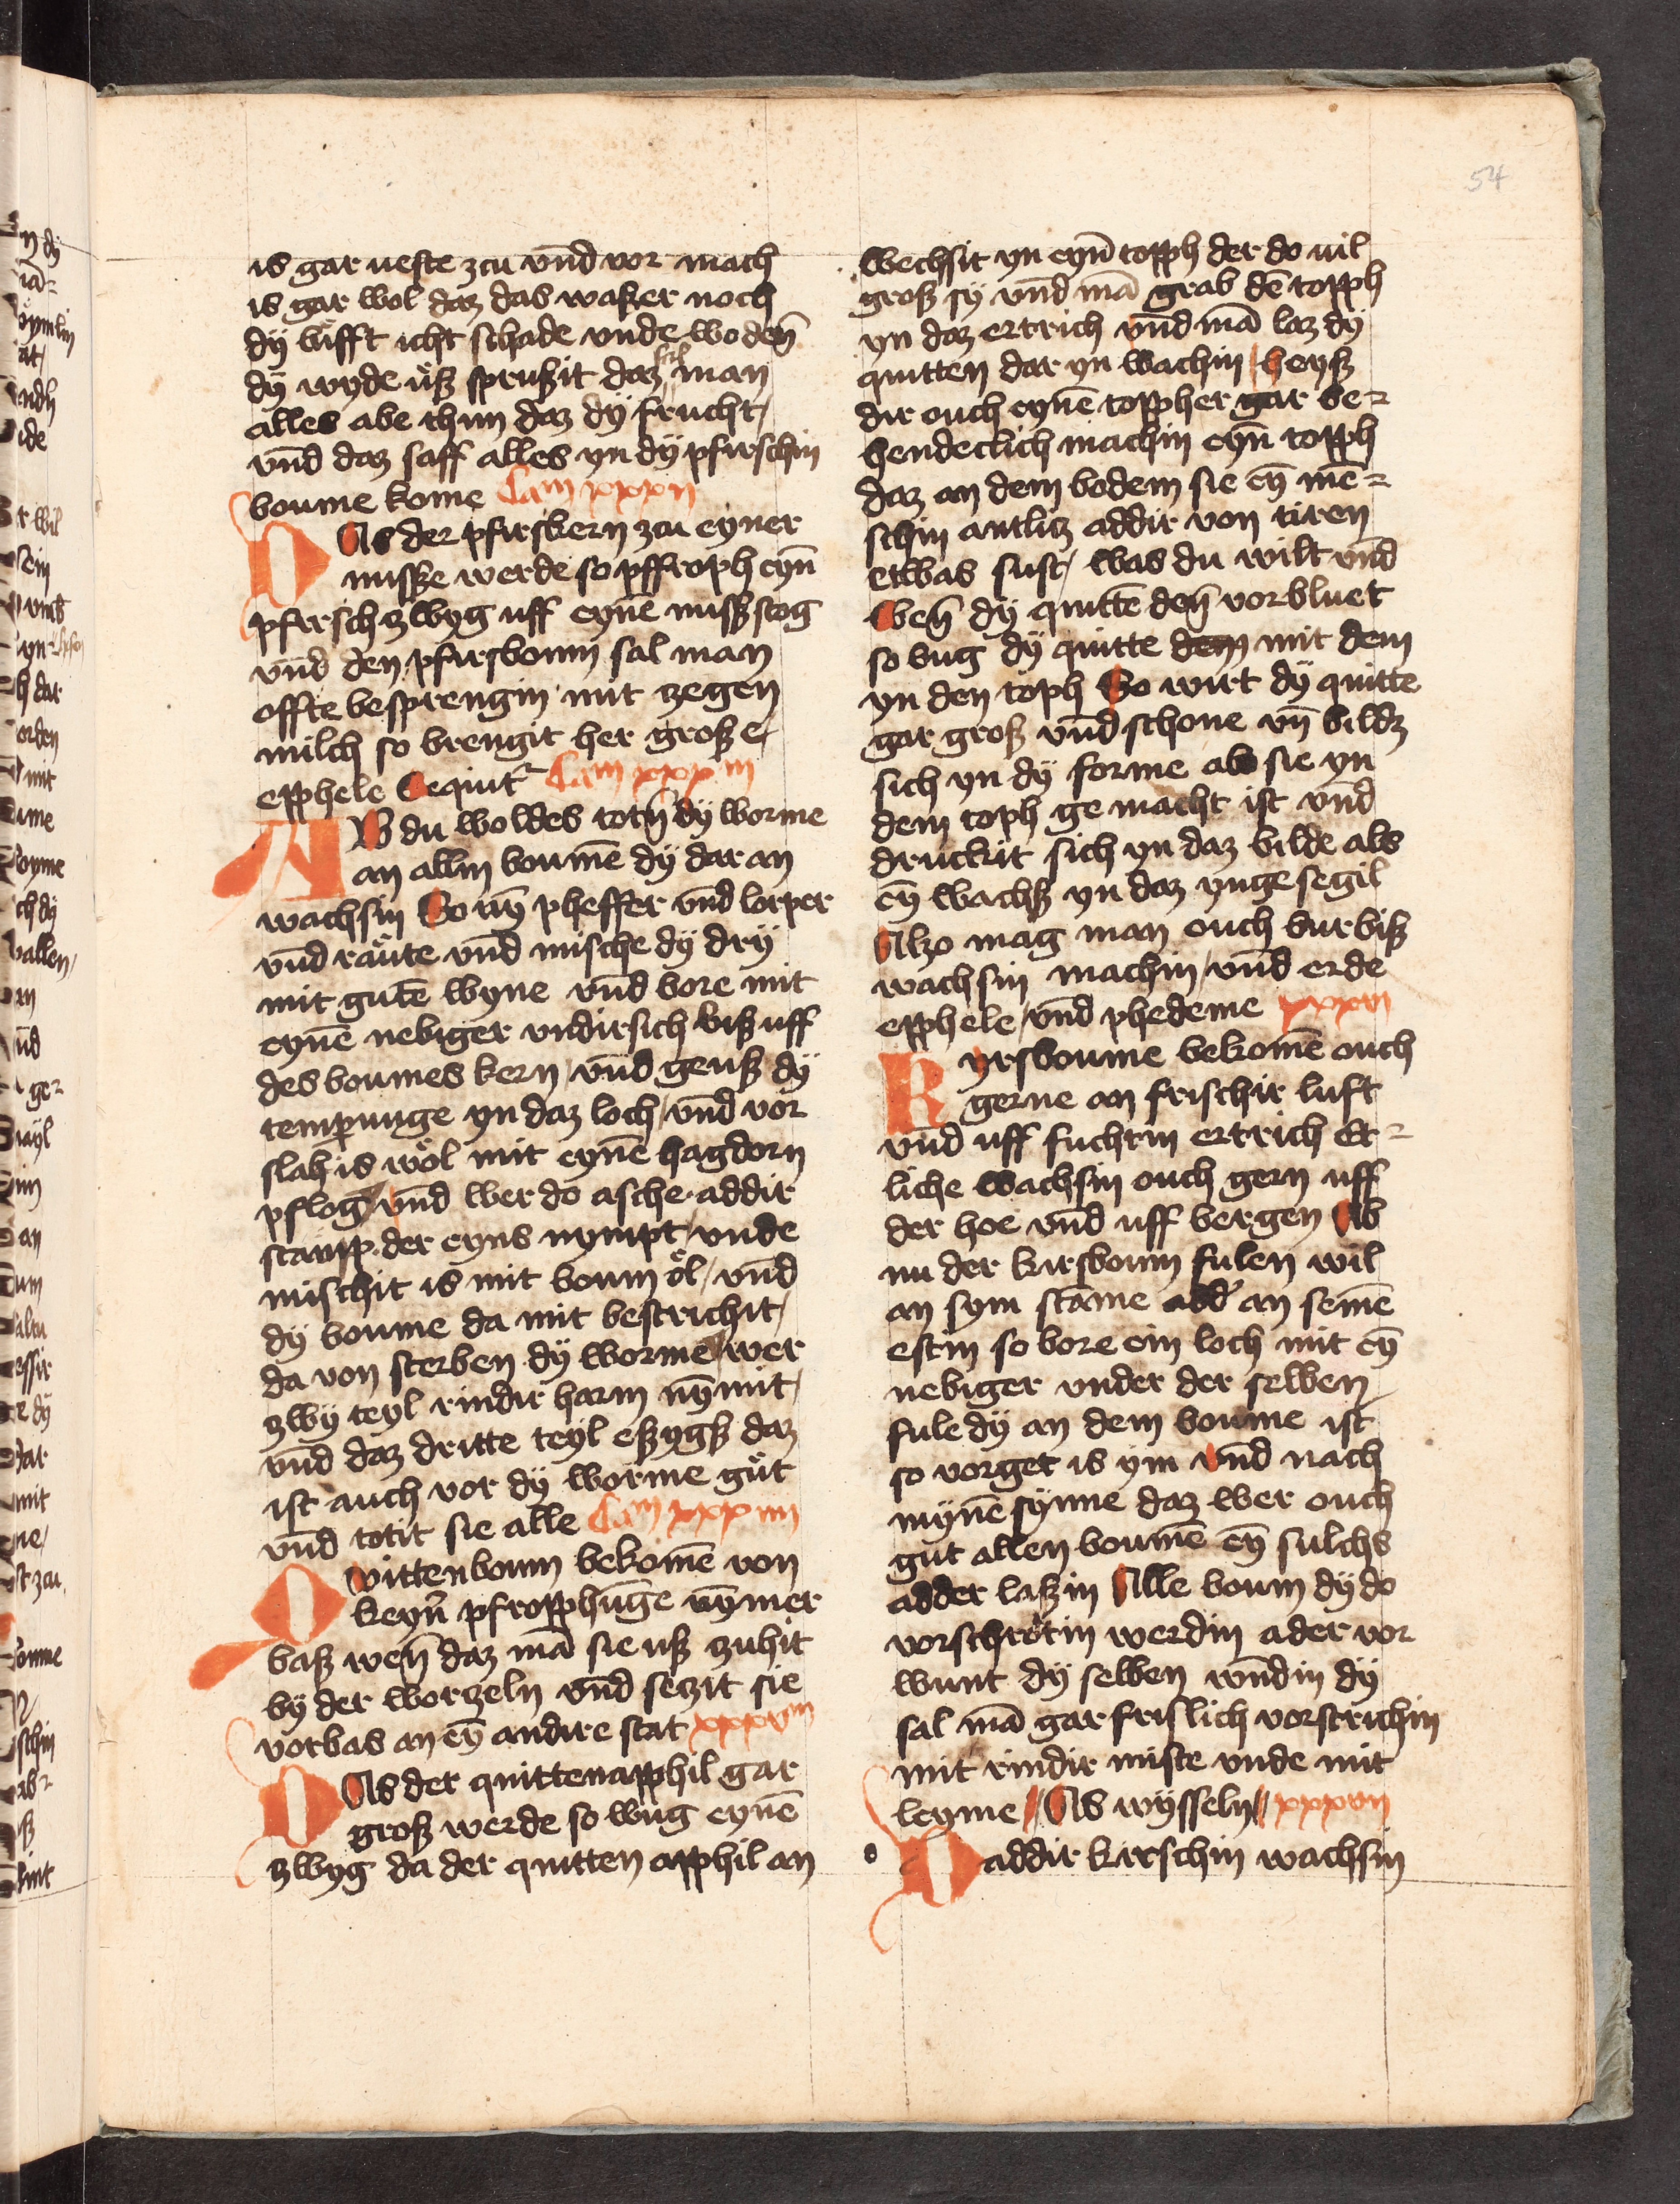 54
is gar ueste zcu vnd vor mach
is gar wol daz das waßer noch
dy lufft icht schade vnde wo den̄
dy wyde uß sprußit daz sal man
alles abe thun daz dy frucht /
vnd daz saff alles yn dy pfirschin
boume kome Cam xxxii
Das der pfirskern zcu eyner
nussze werde so pffroph eyn̄
pfirschzwyg uff eynē nußstog
vnd den pfirsboum sal man
offte besprengin mit zegen
milch so brengit her große /
epphele Sequit᷑ Cam xxxiii
AB du woldes totn̄ dy worme
an allin boumē dy dar an
wachsin So nȳ pheffer vnd lorper
vnd raute vnd mische dy dry
mit gutē wyne vnd bore mit
eynē nebiger vndirsich biß uff
des boumes kern / vnd geuß dy
temperunge yn daz loch / vnd vor
slah is wol mit eynē hagdorn
pflog / vnd wer do asche addir
stamp der eyns nympt / vnde
mischit is mit boum öl / vnd
dy boume da mit bestrichit /
da von sterben dy worme / wer
zwy teyl rindir harm nȳmit /
vnd daz dritte teyl eßygß daz
ist auch vor dy worme gut
vnd totit sie alle Cam xxxiiii
Quittenboum bekomē von
keyn̄ pfropphūge nȳmer
baß wen̄ daz mā sie uß zuhit
by der worzeln vnd seczit sie
vorbas an eȳ andire stat xxxvm
Das der quittenapphil gar
groß werde so bug eynē
zwyg da der quitten apphil an
wechsit yn eyn̄ topph der do uil
groß sy vnd mā grab dē topph
yn daz ertrich vnd mā laz dy
quitten dar yn wachin / heyß
dir ouch eynē toppher gar be=
hendeclich machin eyn̄ topph
daz an dem bodem sie eȳ mē=
schin antlitz addir von tiren
etwas sust / was du wilt vnd
Wen̄ dy quittē den̄ vorbluet
so bug dy quitte dem mit dem
yn den toph So wirt dy quitte
gar groß vnd schone vn̄ bildz
sich yn dy forme als sie yn
dem toph ge macht ist vnd
druckit sich yn daz bilde als
eȳ wachß yn daz yngesegil
Alzo mag man ouch kurbiß
wachsin machin / vnd erde
epphele / vnd phedeme xxxvi
Kyrsboume bekomē ouch
gerne an frischir luft
vnd uff fuchtin ertrich Et=
liche wachsin ouch gern uff
der hoe vnd uff bergen Ab
nu der kirsboum fulen wil
an sym stāme add᷑ an semē
estin so bore ein loch mit eȳ
nebiger vnder der selben
fule dy an dem boume ist
so vorget is ym vnd nach
mynē synne daz wer ouch
gut allen boumē eȳ sulchs
adder laßin Alle boum dy do
vorschrotin werdin ader vor
wunt dy selben wūdin dy
sal mā gar frislich vorstrichin
mit rindir miste vnde mit
leyme // As wysseln // xxxvii
D addir kirschin wachsin